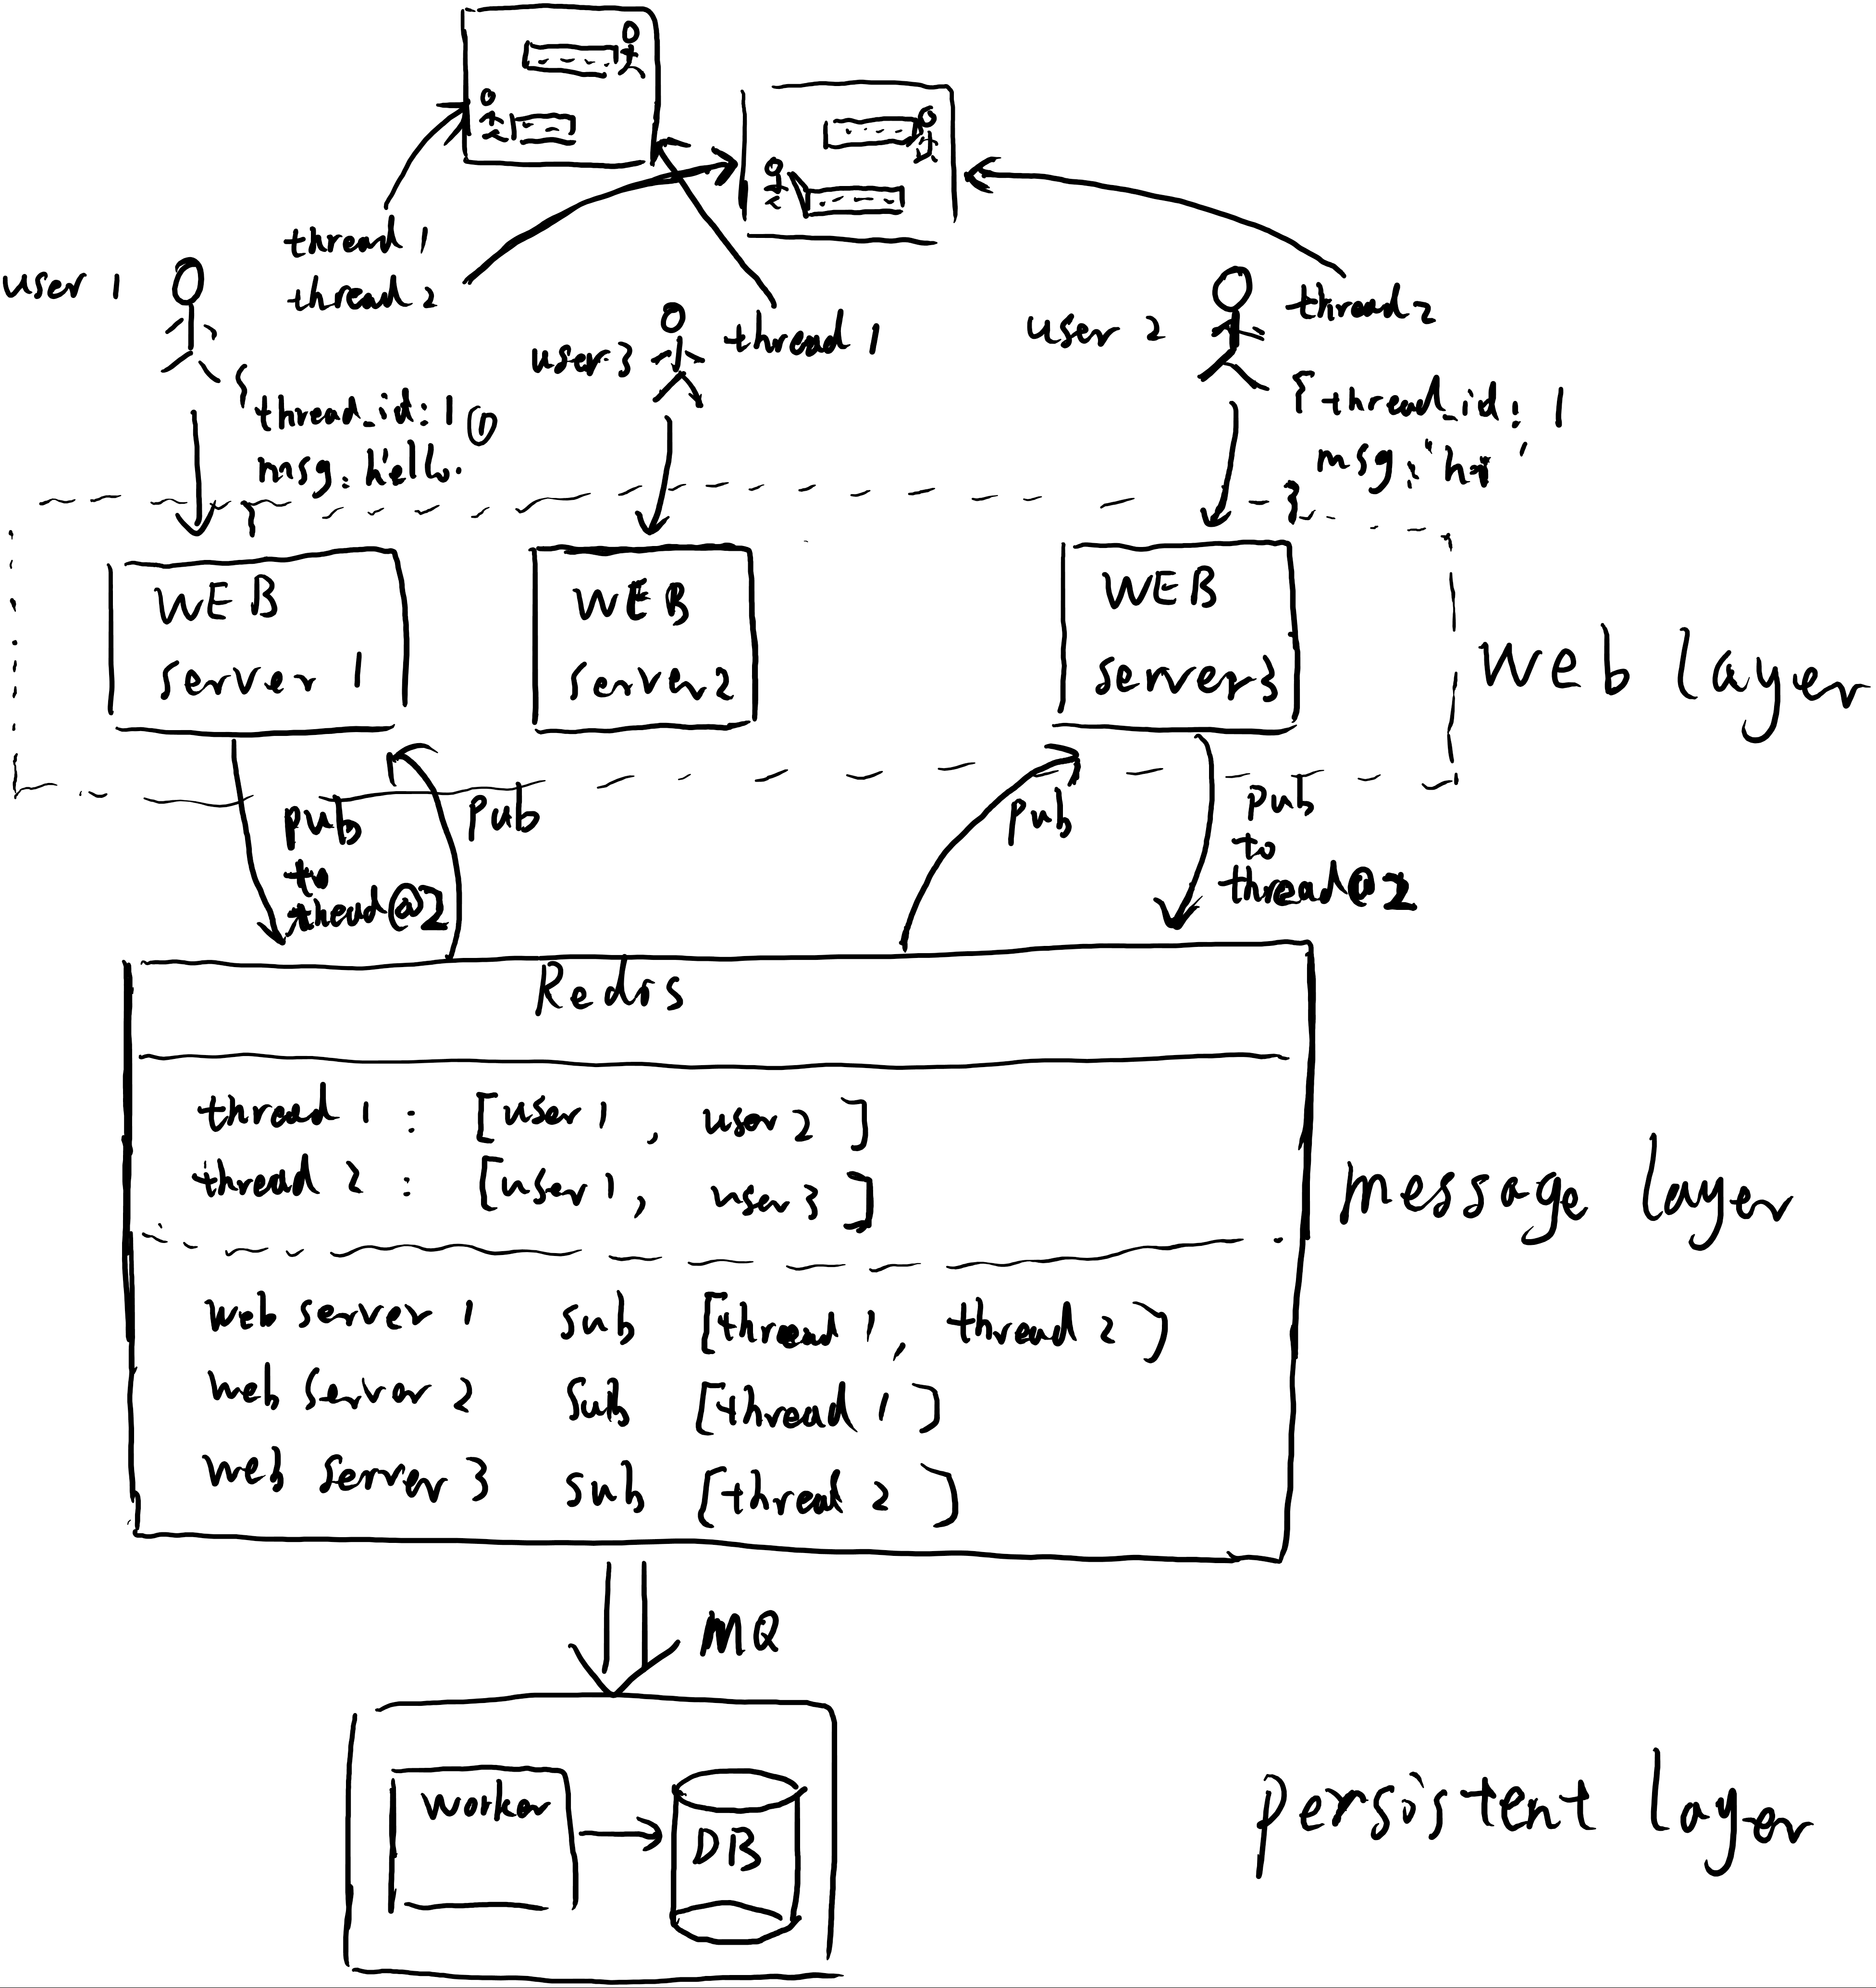 thread 1
thread 2
user 1
user 3
thread 1
user 2
thread 2
{
thread_id: 1
msg: hello.
}
{ thread_id: 1
msg: "hi"
}
WEB
server 1
WEB
server 2
WEB
server 3
Web layer
pub
to
thread 2
pub
pub
pub
to
thread 2
Redis
thread 1 : [user 1, user 2]
thread 2 : [user 1, user 3]
message layer
web server 1 sub [thread 1, thread 2]
web server 2 sub [thread 1]
web server 3 sub [thread 2]
MQ
worker
DB
persistent layer